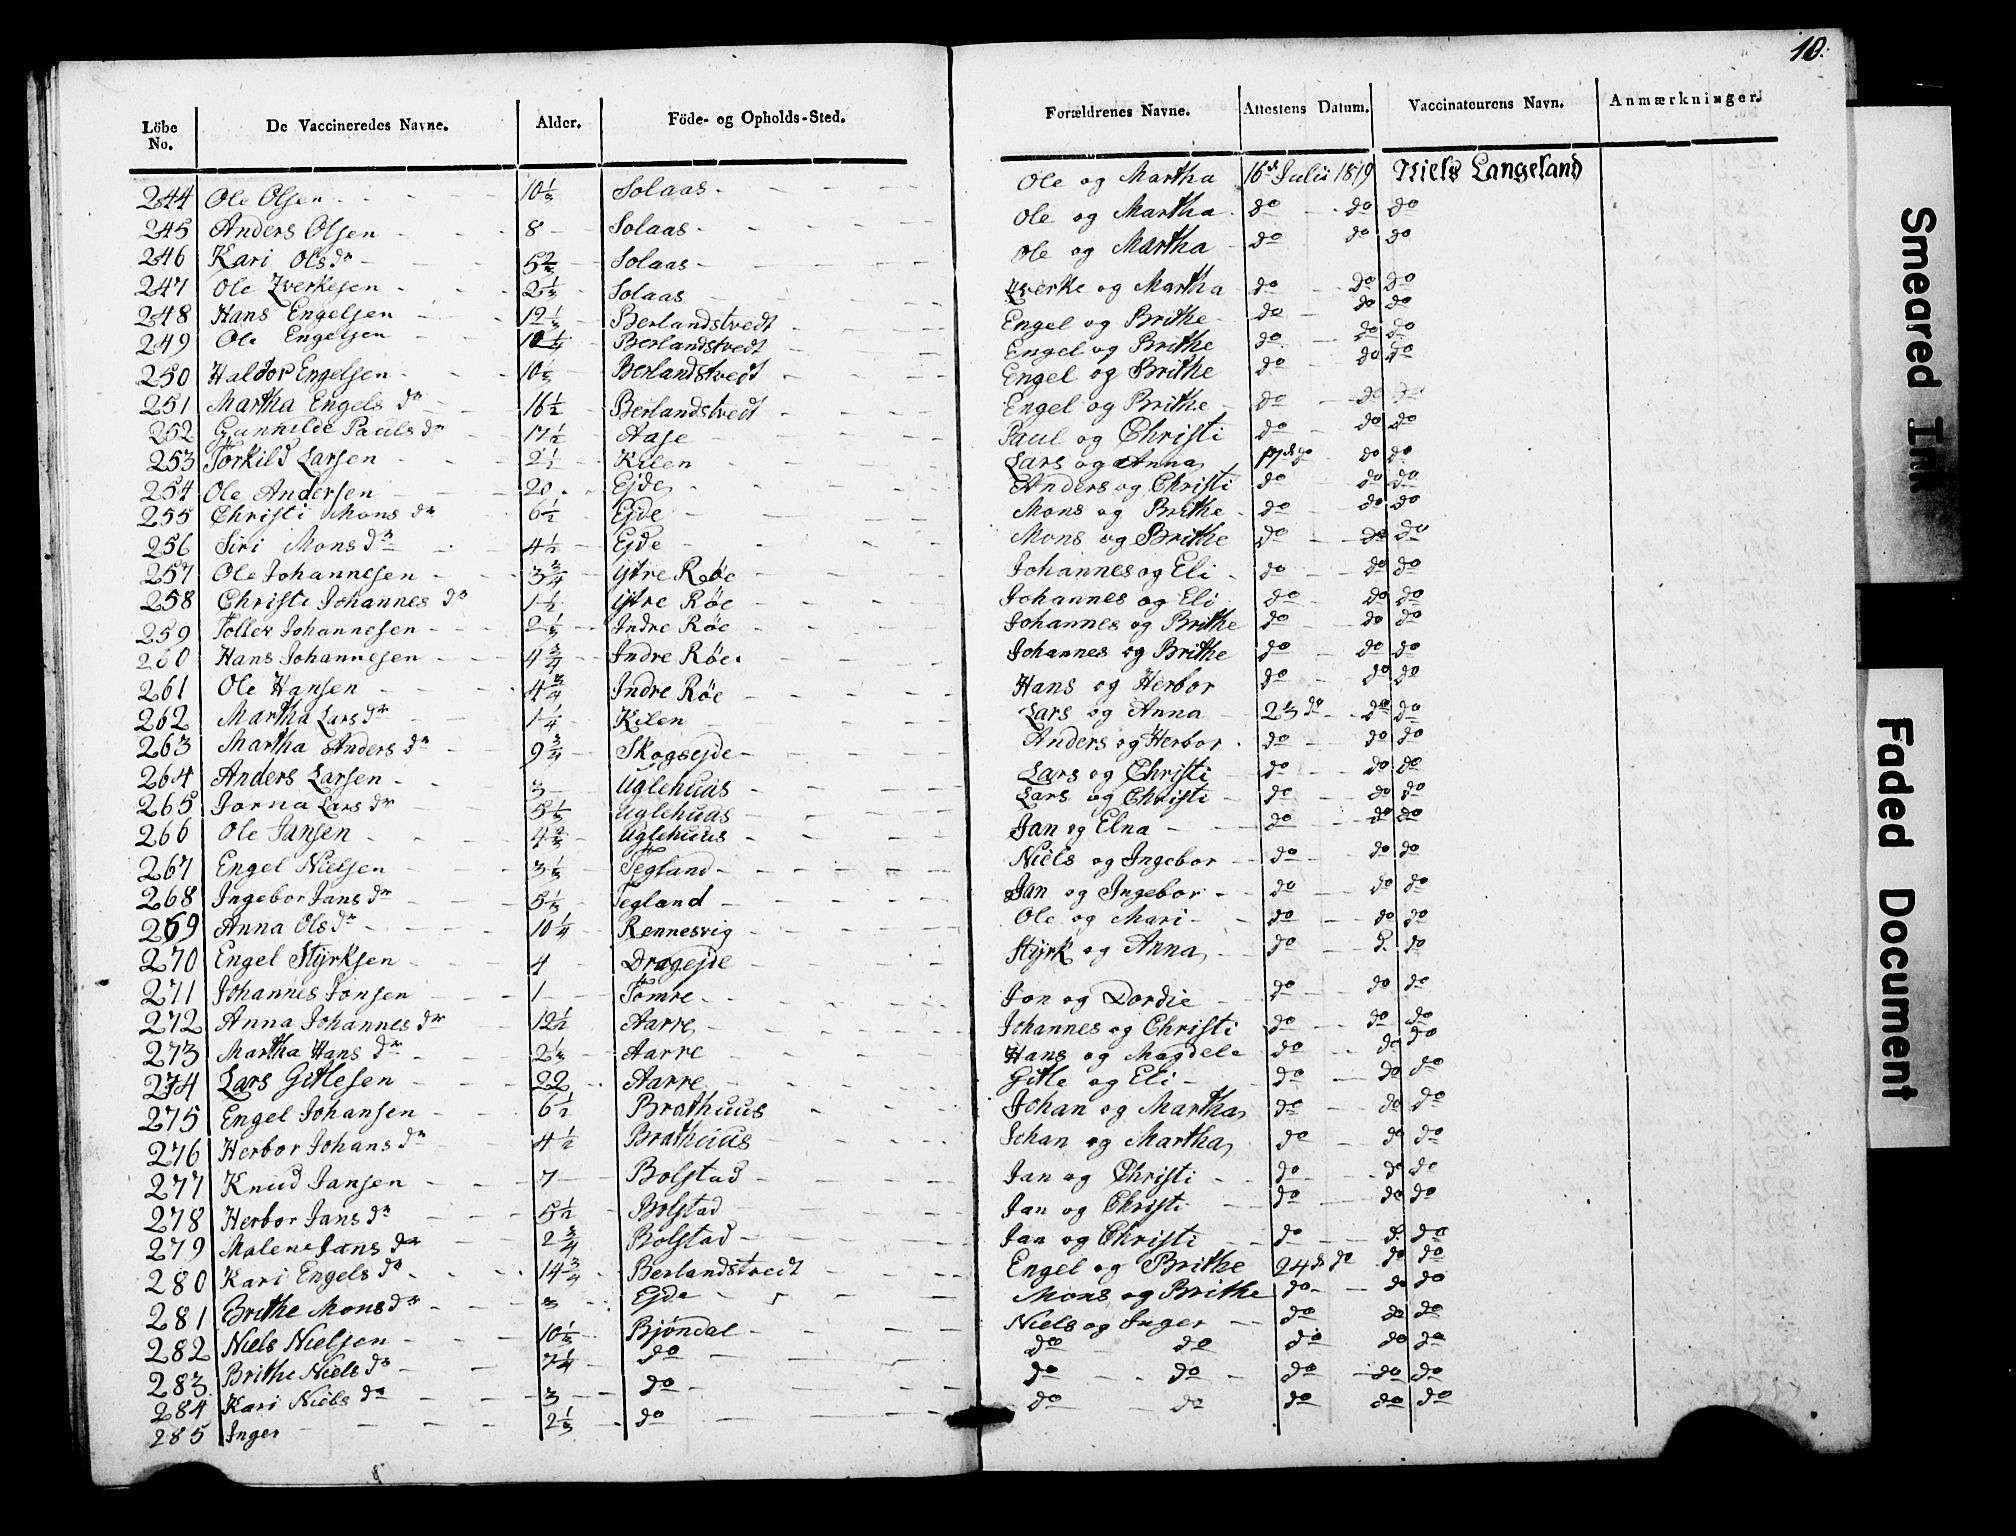 10.
Löbe No. De Vaccineredes Navne. Alder. Föde- og Opholds-Sted. Forældrenes Navne. Attestens Datum. Vaccinateurens Navn. Anmærkninger.
244 Ole Olsen 10 1/3 Solaas Ole og Martha 16d Julii 1819 Niels Langeland
245 Anders Olsen 8 Solaas Ole og Martha do do do
246 Kari Olsdr 5 2/3 Solaas Ole og Martha do do do
247 Ole Zverkesen 2 1/3 Solaas Zverke og Martha do do do
248 Hans Engelsen 12 1/3 Berlandstvedt Engel og Brithe do do do
249 Ole Engelsen Berlandstvedt Engel og Brithe do do do
250 Haldor Engelsen 10 1/3 Berlandstvedt Engel og Brithe do do do
251 Martha Engels dr 16 1/2 Berlandstvedt Engel og Brithe do do do
252 Gunhilde Pauls dr 17 1/2 Aase Paul og Christi do do do
253 Torkild Larsen 2 1/2 Kilen Lars og Anna 17d do do do
254 Ole Andersen 20 Ejde Anders og Christi do do do
255 Christi Mons dr 6 1/2 Ejde Mons og Brithe do do do
256 Siri Mons dr 4 1/2 Ejde Mons og Brithe do do do
257 Ole Johannesen 3 3/4 ytre Røe Johannes og Eli do do do
258 Christi Johannes dr 1 1/2 ytre Røe Johannes og Eli do do do
259 Toller Johannesen 2 1/3 Indre Røe Johannes og Brithe do do do
260 Hans Johannesen 4 3/4 Indre Røe Johannes og Brithe do do do
261 Ole Hansen 4 3/4 Indre Røe Hans og Herbor do do do
262 Martha Lars dr 1 1/4 Kilen Lars og Anna 23 do do do
263 Martha Anders dr 9 3/4 Skogsejde Anders og Herbor do do do
264 Anders Larsen 3 Uglehuus Lars og Christi do do do
265 Jorna Lars dr 5 1/3 Uglehuus Lars og Christi do do do
266 Ole Jansen 4 2/3 Uglehuus Jan og Elna do do do
267 Engel Nielsen 3 1/3 Tegland Niels og Ingebor do do do
268 Ingebor Jans dr 5 1/3 Tegland Jan og Ingebor do do do
269 Anna Ols dr 10 1/4 Rennesvig Ole og Mari do do do
270 Engel Styrksen 4 Dragejde Styrk og Anna do d. do
271 Johannes Jonsen 1 Tomre Jon og Dordie do do do
272 Anna Johannes dr 12 1/2 Aarre Johannes og Christi do do do
273 Martha Hans dr 2 1/3 Aarre Hans og Magdele do do do
274 Lars Gitlesen 22 Aarre Gitle og Eli do do do
275 Engel Johansen 6 1/2 Brathuus Johan og Martha do do do
276 Herbor Johans dr 4 1/2 Brathuus Johan og Martha do do do
277 Knud Jansen 7 Bolstad Jan og Christi do do do
278 Herbor Jans dr 5 1/2 Bolstad Jan og Christi do do do
279 Malene Jans dr 2 3/4 Bolstad Jan og Christi do d. do
280 Kari Engels dr 14 3/4 Berlandstvedt Engel og Brithe 24d do do do
281 Brithe Mons dr 3 Ejde Mons og Brithe do do do
282 Niels Nielsen 10 1/3 Bjöndal Niels og Inger do do do
283 Brithe Niels dr 7 1/4 do do do do do do
284 Kari Niels dr 3 do do do do do do
285 Inger 2 1/3 do do do do do do
Smeared Ink
Faded Document